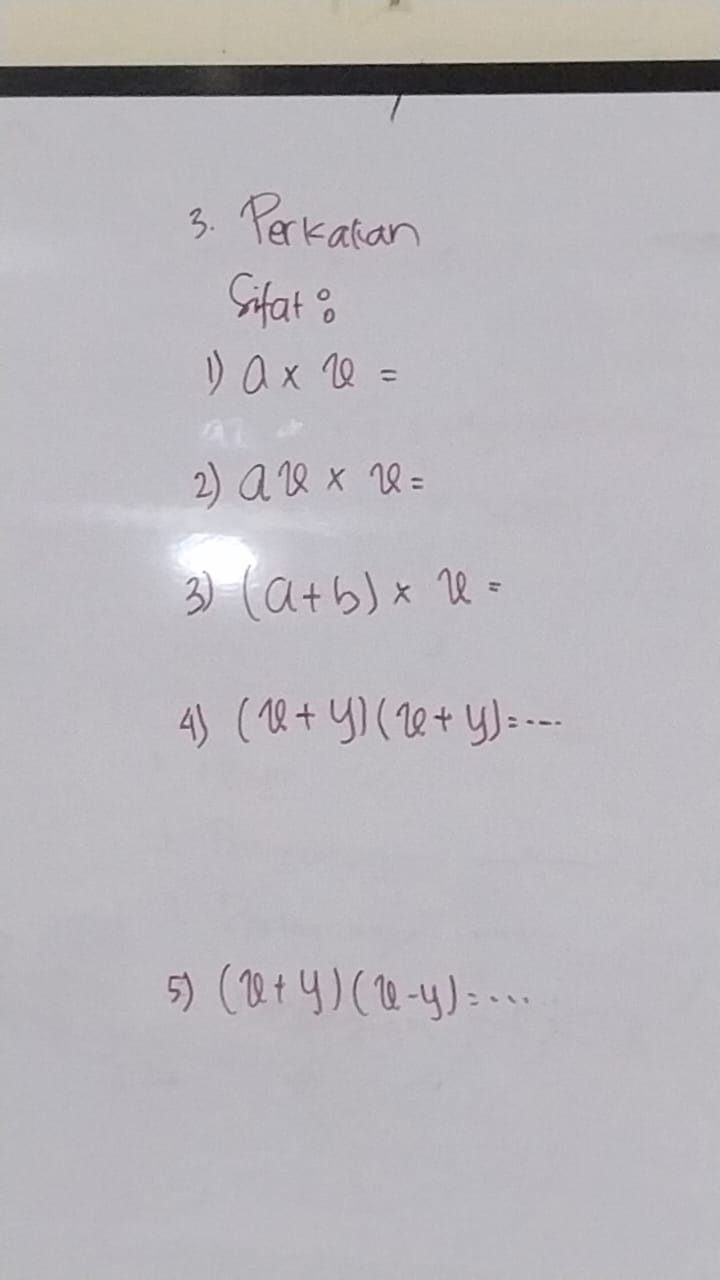 3. Perkalian
Sifat :
1) a x x =
2) ax x x =
3) (a+b) x x =
4) (x+y)(x+y)=....
5) (x+y)(x-y)=....